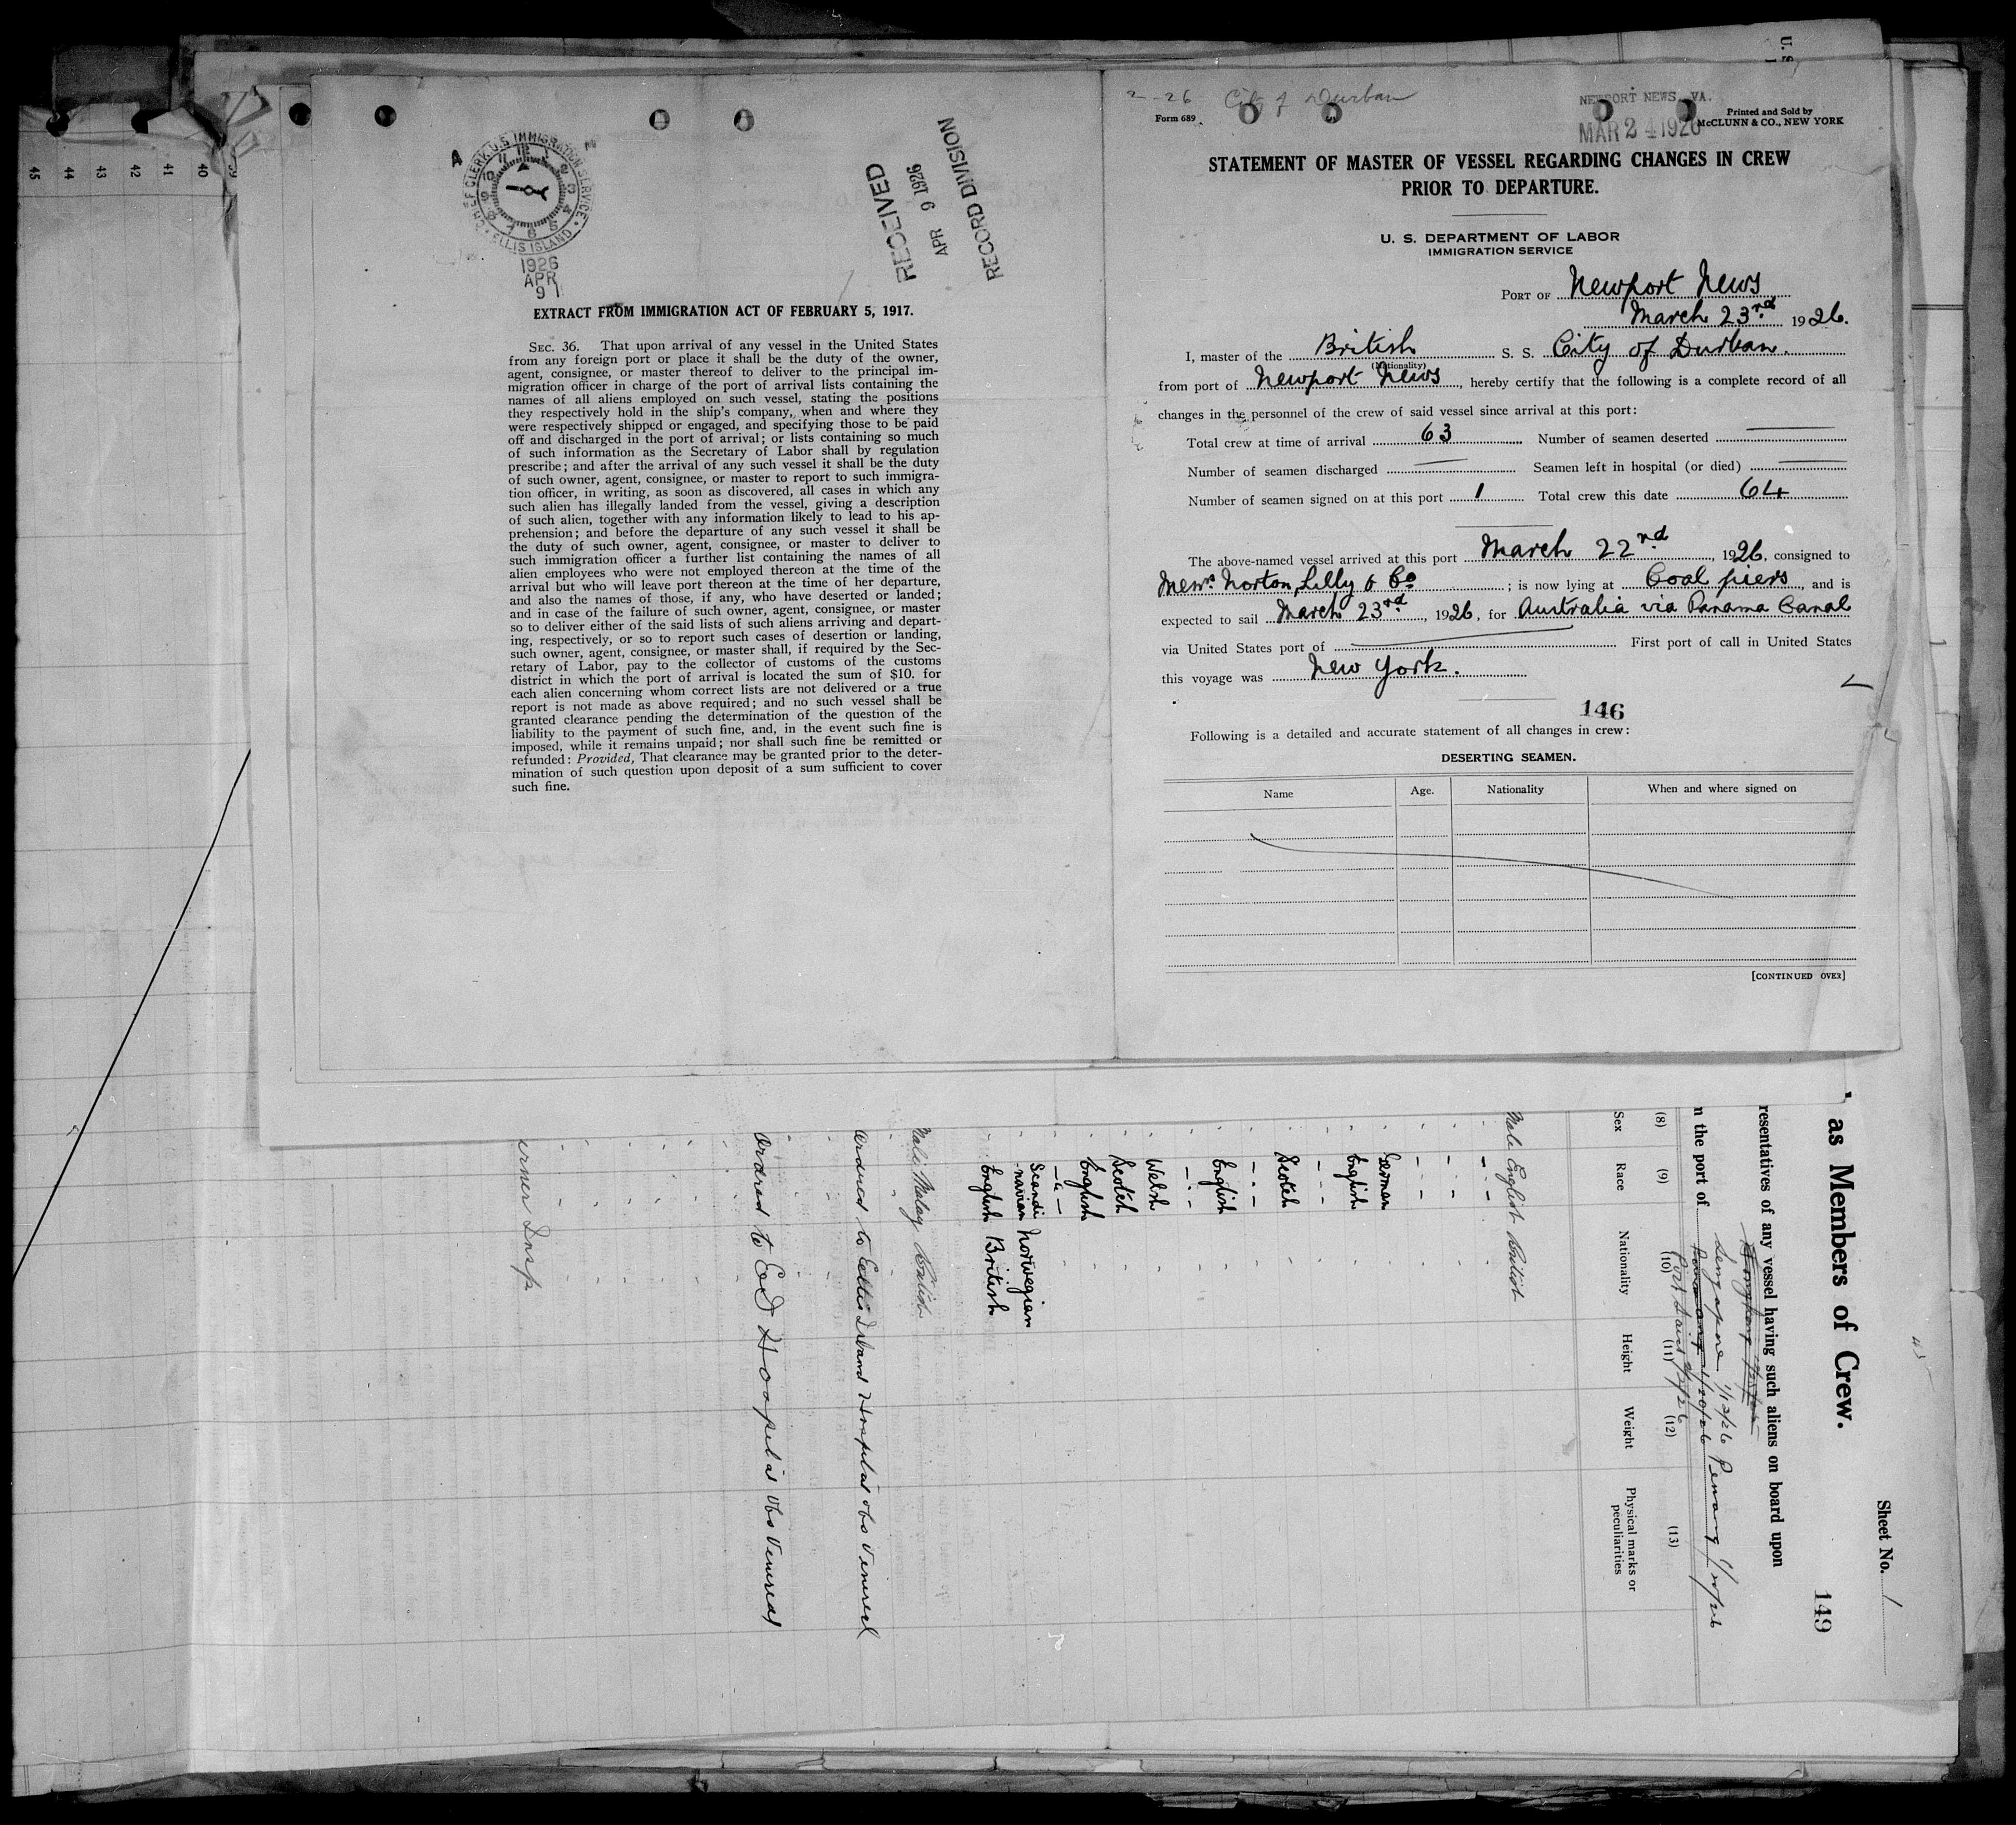 45 44 43 42 41 40
CHIEF CLERK U.S. IMMIGRATION SERVICE
ELLIS ISLAND
1926
APR
9
RECEIVED
APR 9 1926
RECORD DIVISION
EXTRACT FROM IMMIGRATION ACT OF FEBRUARY 5, 1917.
SEC. 36. That upon arrival of any vessel in the United States
from any foreign port or place it shall be the duty of the owner,
agent, consignee, or master thereof to deliver to the principal im-
migration officer in charge of the port of arrival lists containing the
names of all aliens employed on such vessel, stating the positions
they respectively hold in the ship's company, when and where they
were respectively shipped or engaged, and specifying those to be paid
off and discharged in the port of arrival; or lists containing so much
of such information as the Secretary of Labor shall by regulation
prescribe; and after the arrival of any such vessel it shall be the duty
of such owner, agent, consignee, or master to report to such immigra-
tion officer, in writing, as soon as discovered, all cases in which any
such alien has illegally landed from the vessel, giving a description
of such alien, together with any information likely to lead to his ap-
prehension; and before the departure of any such vessel it shall be
the duty of such owner, agent, consignee, or master to deliver to
such immigration officer a further list containing the names of all
alien employees who were not employed thereon at the time of the
arrival but who will leave port thereon at the time of her departure,
and also the names of those, if any, who have deserted or landed;
and in case of the failure of such owner, agent, consignee, or master
so to deliver either of the said lists of such aliens arriving and depart-
ing, respectively, or so to report such cases of desertion or landing,
such owner, agent, consignee, or master shall, if required by the Sec-
retary of Labor, pay to the collector of customs of the customs
district in which the port of arrival is located the sum of $10. for
each alien concerning whom correct lists are not delivered or a true
report is not made as above required; and no such vessel shall be
granted clearance pending the determination of the question of the
liability to the payment of such fine, and, in the event such fine is
imposed, while it remains unpaid; nor shall such fine be remitted or
refunded: Provided, That clearance may be granted prior to the deter-
mination of such question upon deposit of a sum sufficient to cover
such fine.
2-26 City of Durban
Form 689
NEWPORT NEWS, VA.
MAR 24 1926
Printed and Sold by
McCLUNN & CO., NEW YORK
STATEMENT OF MASTER OF VESSEL REGARDING CHANGES IN CREW
PRIOR TO DEPARTURE.
U. S. DEPARTMENT OF LABOR
IMMIGRATION SERVICE
PORT OF Newport News
March 23rd 1926.
I, master of the British S. S. City of Durban.
(Nationality)
from port of Newport News, hereby certify that the following is a complete record of all
changes in the personnel of the crew of said vessel since arrival at this port:
Total crew at time of arrival 63 Number of seamen deserted —
Number of seamen discharged — Seamen left in hospital (or died) —
Number of seamen signed on at this port 1 Total crew this date 64
The above-named vessel arrived at this port March 22nd, 1926, consigned to
Messrs Norton, Lilly & Co; is now lying at Coal piers, and is
expected to sail March 23rd, 1926, for Australia via Panama Canal
via United States port of — First port of call in United States
this voyage was New York.
146
Following is a detailed and accurate statement of all changes in crew:
DESERTING SEAMEN.
Name Age. Nationality When and where signed on
[CONTINUED OVER]
as Members of Crew.
Sheet No. 1
149
resentatives of any vessel having such aliens on board upon
Singapore 1/13/26 Penang
n the port of
Port Said
(8) (9) (10) (11) (12) (13)
Sex Race Nationality Height Weight Physical marks or
peculiarities
Male English British
German
English
Scotch
English
Welsh
Scotch
English
Scandi
navian Norwegian
English British
Male Malay British
Ordered to Ellis Island Hospital obs Venereal
Ordered to E & D Hospital as obs Venereal
Insp